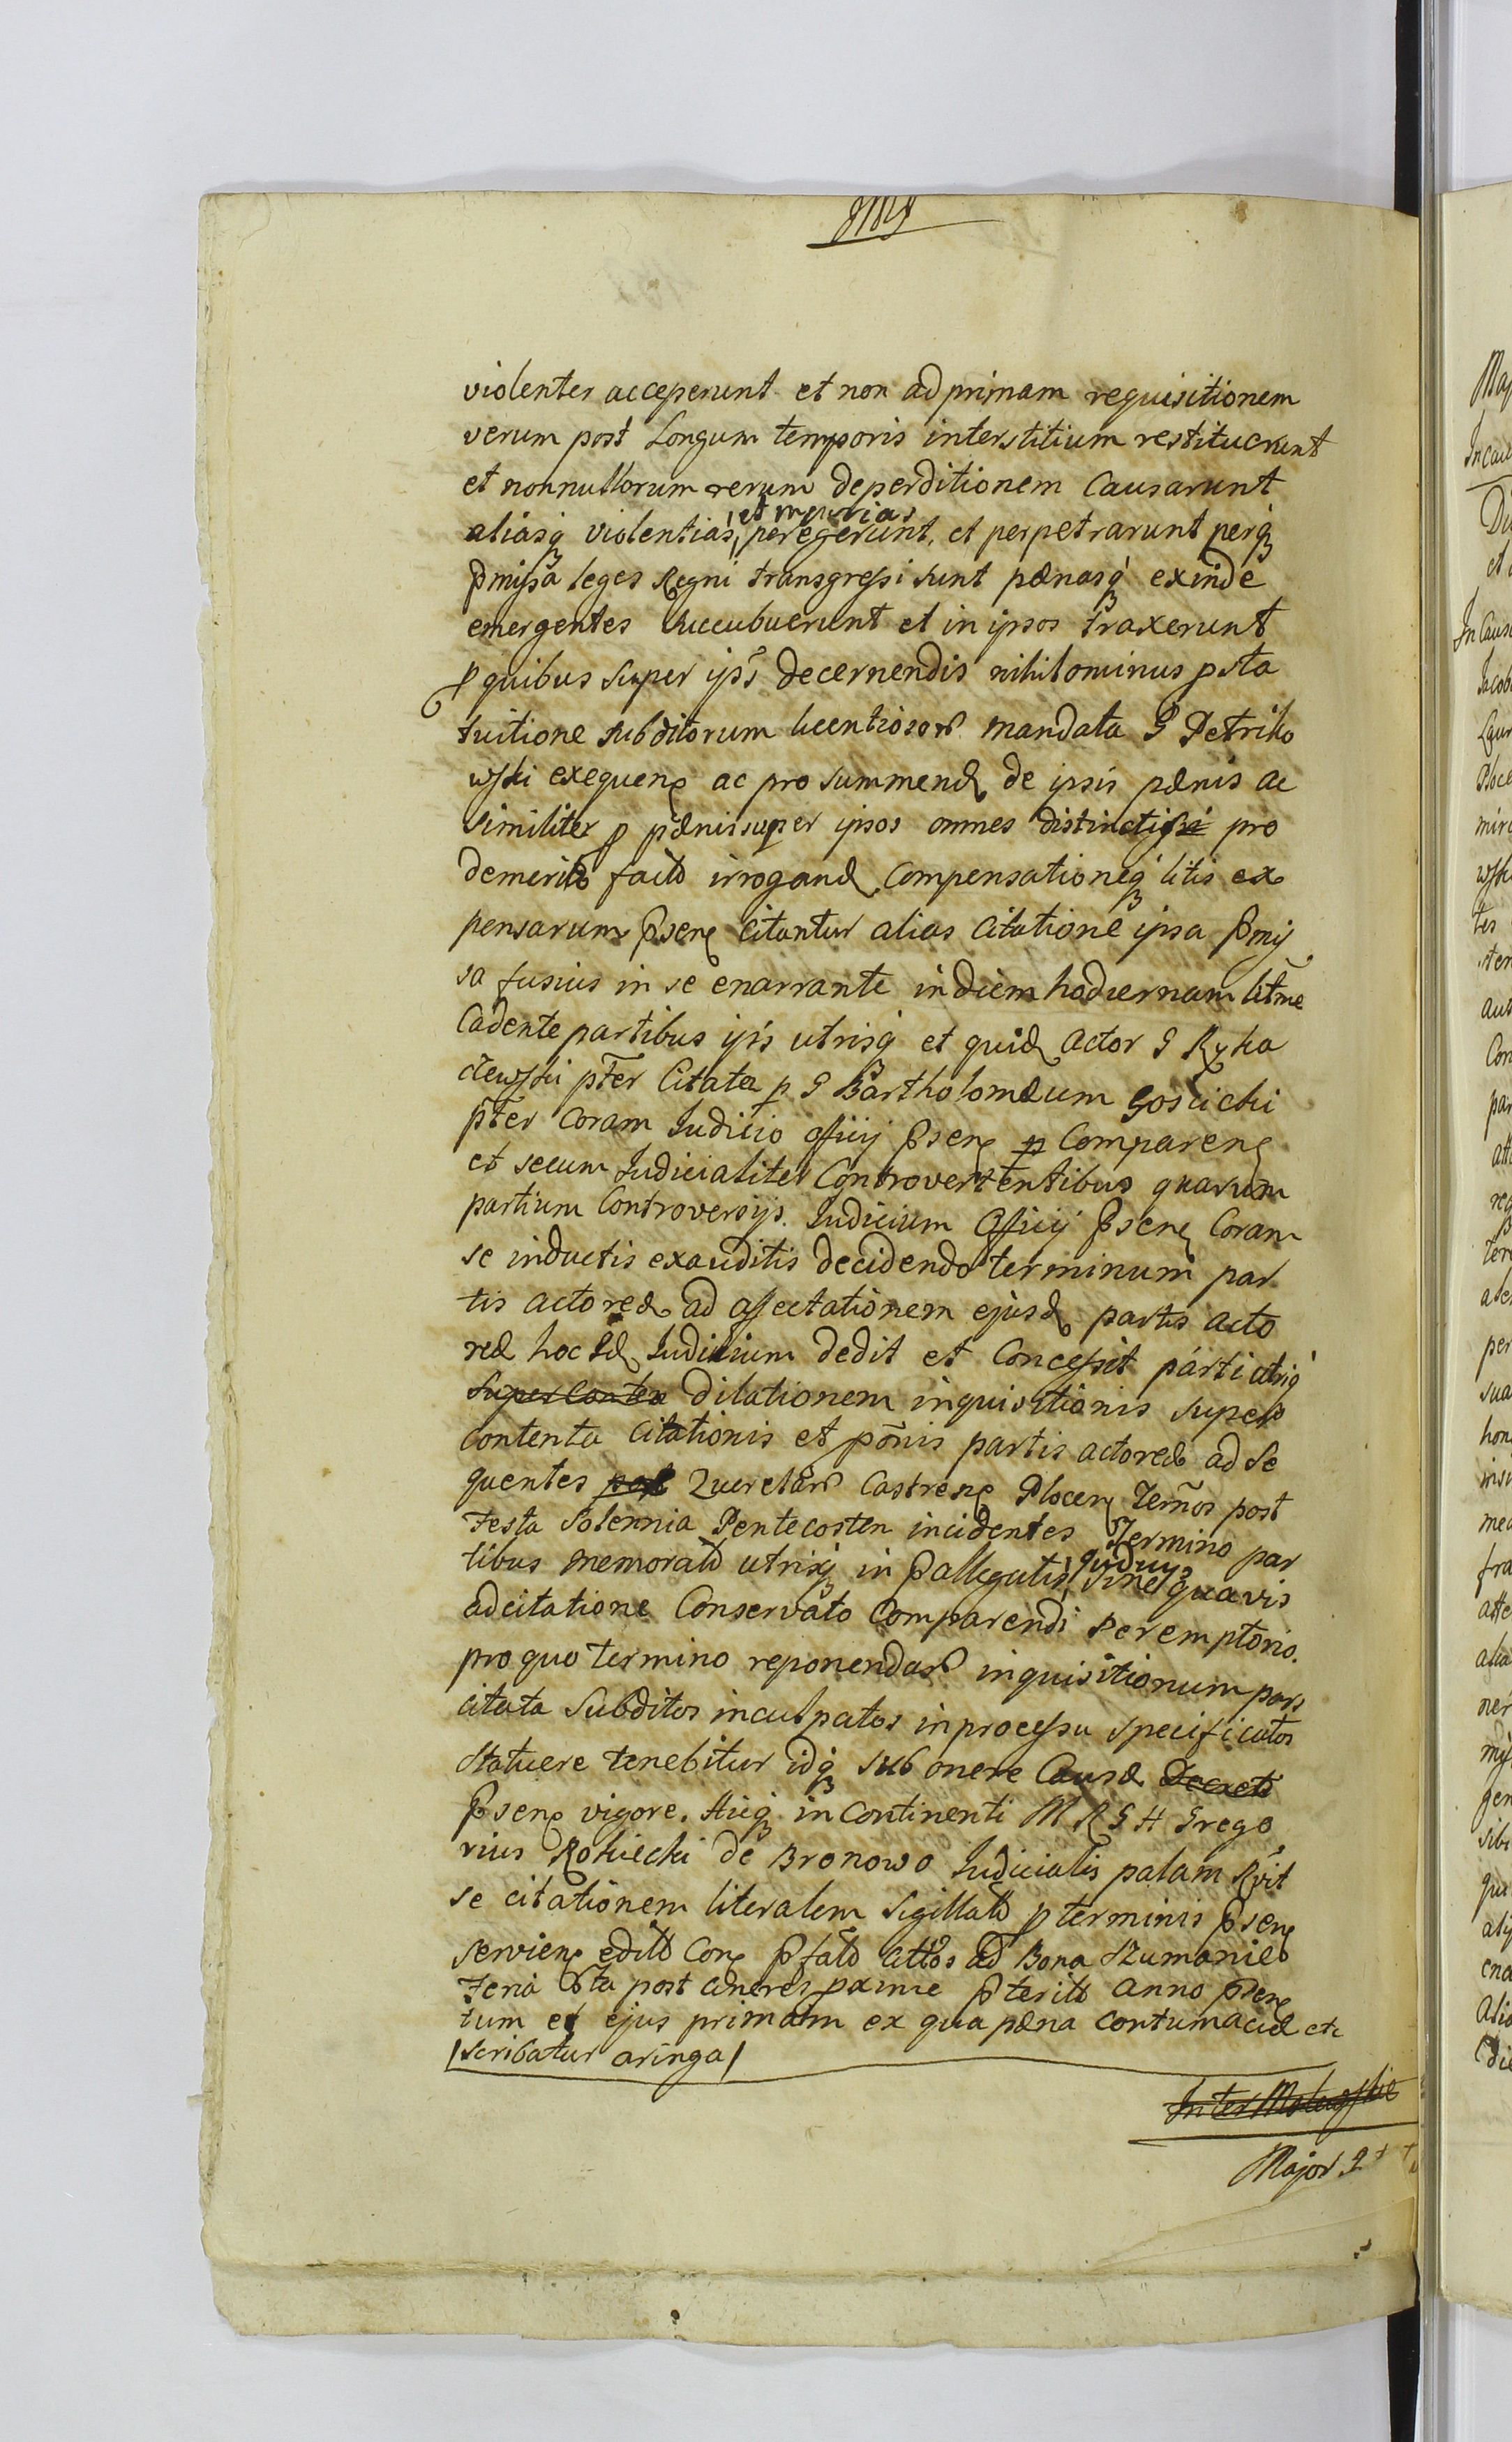 violenter acceperunt et non ad primam requisitionem
verum post Longum temporis interstitium restituerunt
et nonnullorum rerum deperditionem Causarunt
et injurias
aliasq violentias, peregerunt, et perpetrarunt perq
pmissa leges Regni transgressi sunt pænasq exinde
emergentes succubuerunt et in ipsos traxerunt
p quibus super ipsis decernendis nihilominus p sta
tuitione subditorum licentiosor mandata G Petriko
wski exequen ac pro summend de ipsis pænis ac
similiter p pænis super ipsos omnes distinctis pro
demerito facto irrogand Compensationeq litis ex
pensarum psen citantur alias Citatione ipsa pmis
sa fusius in se enarrante in diem hodiernam
Cadente partibus ipsis utrisq et quid Actor G Ryka
czewski pter Citata p G Bartholomæum Goslicki
pter Coram Judicio officij psen Comparen
et secum Judicialiter Controvertentibus quarum
partium Controversijs Judicium Officij psen Coram
se inductis exauditis decidendo terminum par
tis actoreæ ad affectationem ejusd partis acto
reæ hoc Id Judicium dedit et Concessit parti utriq
super Conten dilationem inquisitionis super
Contenta Citationis et ponis partis actoreæ ad Se
quentes post Querelar Castren Plocen Termos post
Festa Solennia Pentecosten incidentes Termino par
tibus memorat utrisq in pallegatis sine quavis
adcitatione Conservato Comparendi peremptorio.
pro quo termino reponendar inquisitionum pars
citata Subditos inculpatos in processu specificatos
statuere tenebitur idq sub onere Causæ Decreti
psen vigore. Hicq in Continenti M R G H Grego
rius Rokicki de Bronowo Judicialis palam Rvit
se citationem literalem Sigillat p terminis psen
servien edit Con pfat attos ad Bona Szumanie
Feria post cineres pxime pterit anno psen
tum et ejus primam ex qua pæna contumaciæ etc
/scribatur aringa/
Major